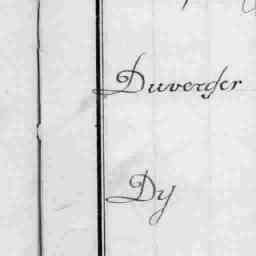 Duverger
Dy